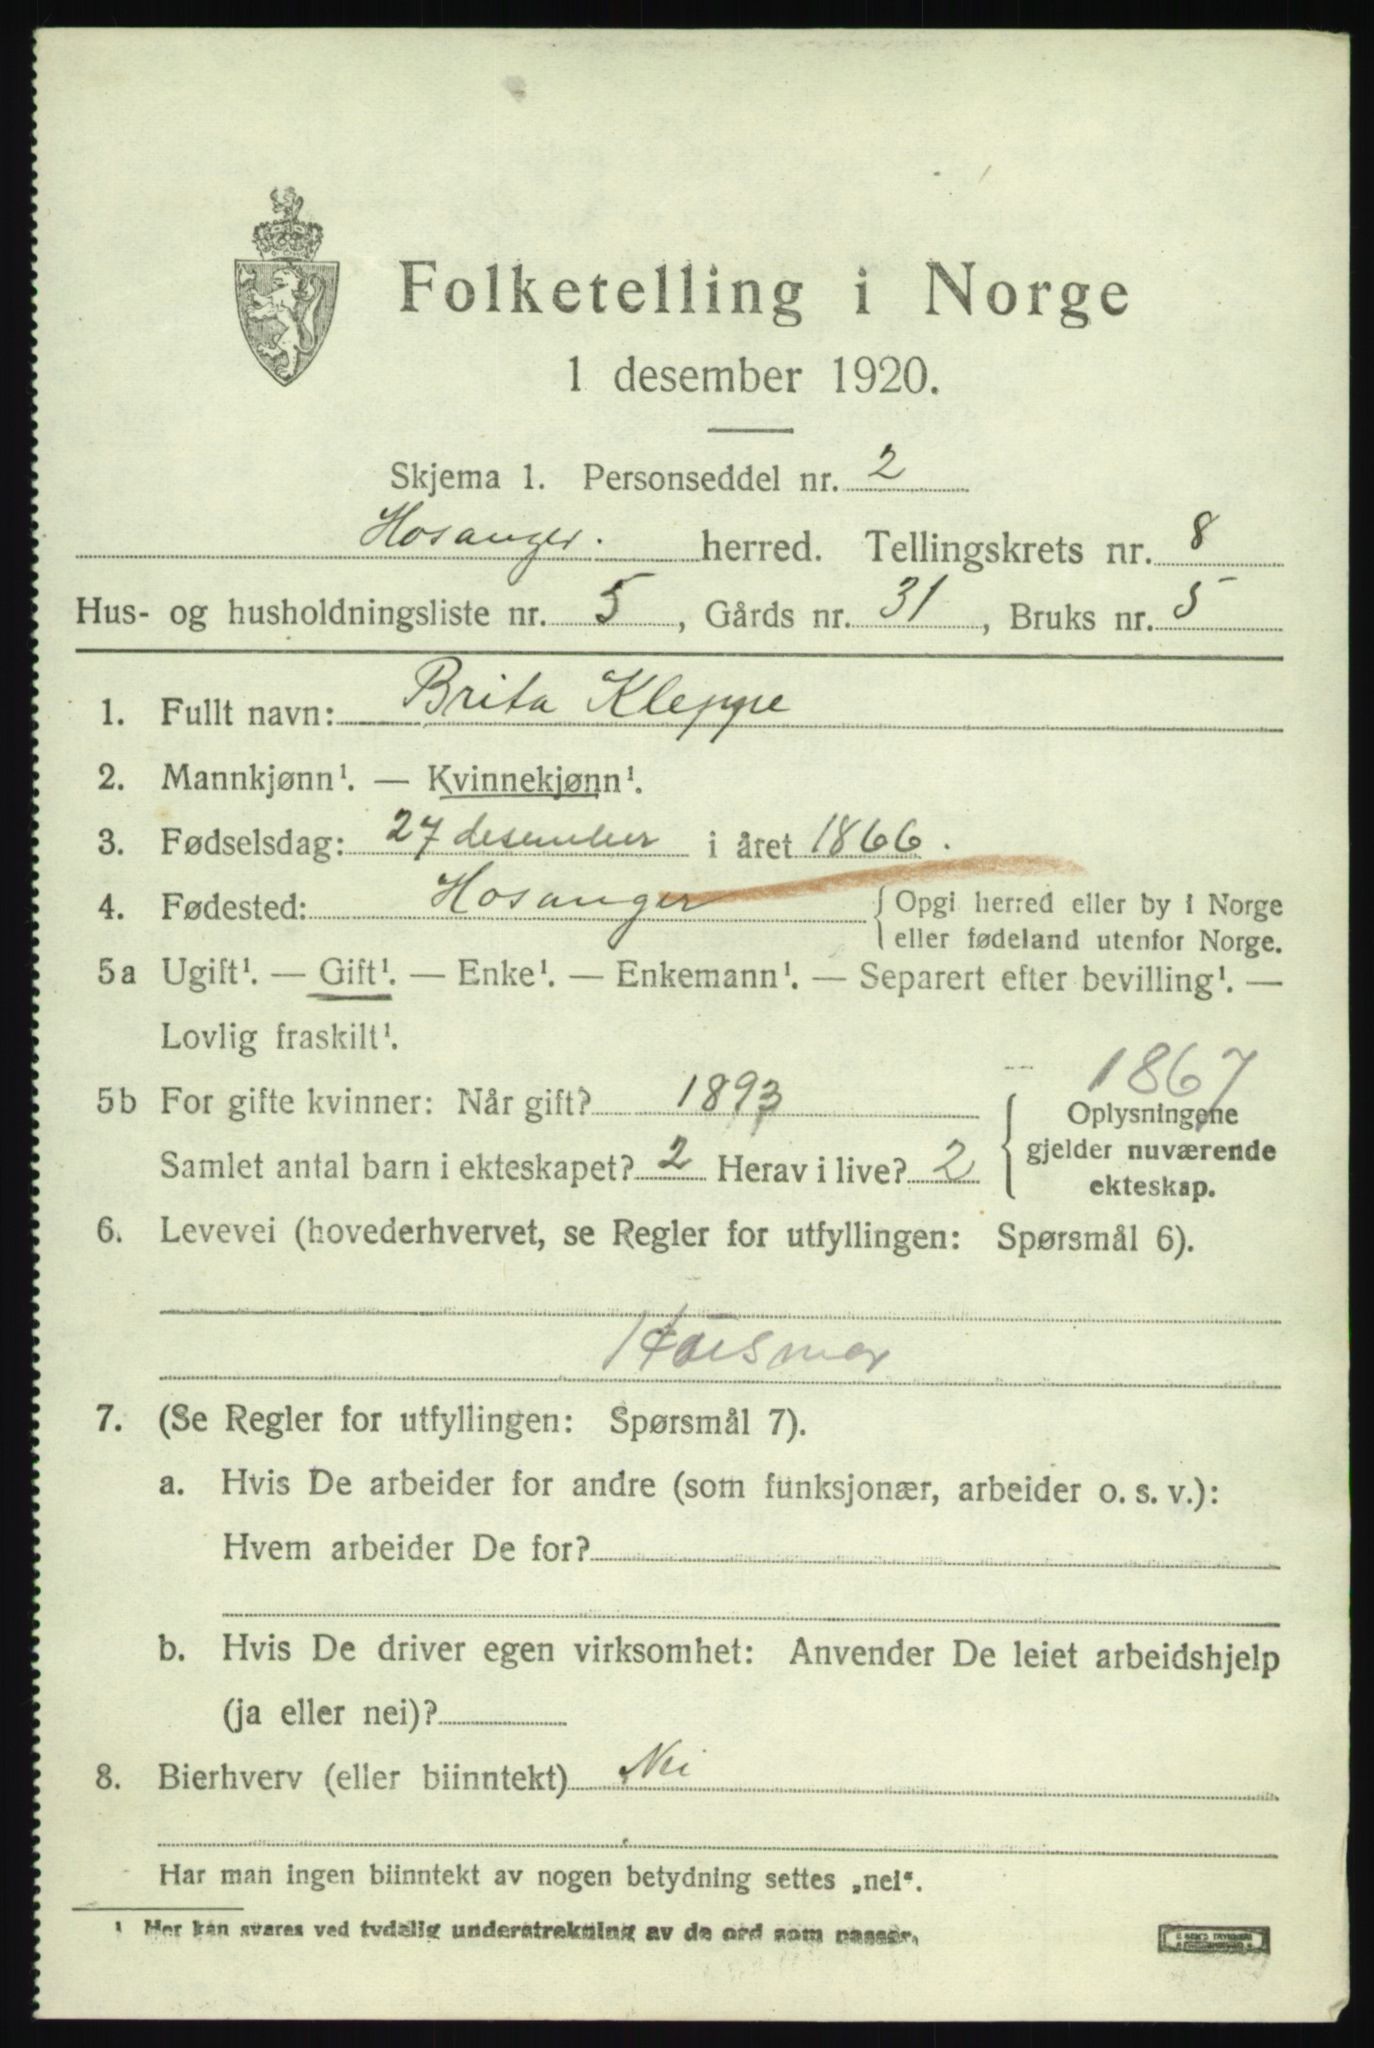 Folketelling i Norge
1 desember 1920.
Skjema 1. Personseddel nr. 2
Hosanger. herred. Tellingskrets nr. 8
Hus- og husholdningsliste nr. 5, Gårds nr. 31, Bruks nr. 5
1. Fullt navn: Brita Kleppe
2. Mannkjønn¹. — Kvinnekjønn¹.
3. Fødselsdag: 27 desember i året 1866.
4. Fødested: Hosanger { Opgi herred eller by i Norge
eller fødeland utenfor Norge.
5a Ugift¹. — Gift¹. — Enke¹. — Enkemann¹. — Separert efter bevilling¹. —
Lovlig fraskilt¹.
1867
5b For gifte kvinner: Når gift? 1893 { Oplysningene
gjelder nuværende
Samlet antal barn i ekteskapet? 2 Herav i live? 2
ekteskap.
6. Levevei (hovederhvervet, se Regler for utfyllingen: Spørsmål 6).
Husmor
7. (Se Regler for utfyllingen: Spørsmål 7).
a. Hvis De arbeider for andre (som funksjonær, arbeider o. s. v.):
Hvem arbeider De for?
b. Hvis De driver egen virksomhet: Anvender De leiet arbeidshjelp
(ja eller nei)?
8. Bierhverv (eller biinntekt) Nei
Har man ingen biinntekt av nogen betydning settes „nei“.
¹ Her kan svares ved tydelig understrekning av de ord som passer.